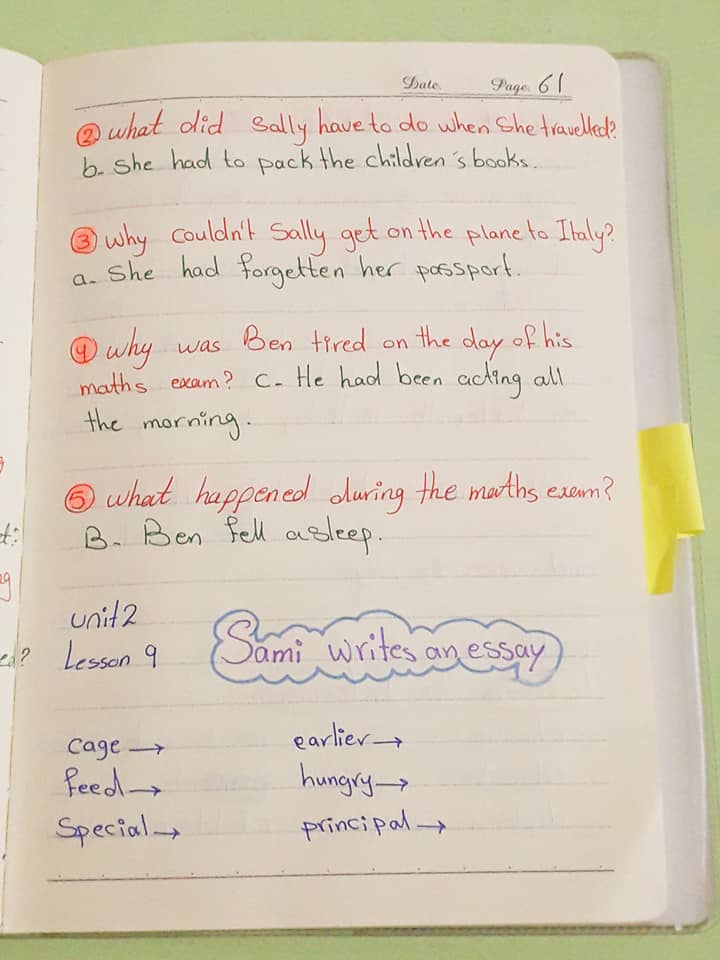 Date. Page. 61
② what did Sally have to do when She travelled?
b. She had to pack the children's books.
③ why couldn't Sally get on the plane to Italy?
a- She had forgetten her passport.
④ why was Ben tired on the day of his
maths exam? C- He had been acting all
the morning.
⑤ what happened during the maths exam?
B- Ben fell asleep.
unit 2
Lesson 9
Sami writes an essay
cage → earlier →
feed → hungry →
Special → principal →